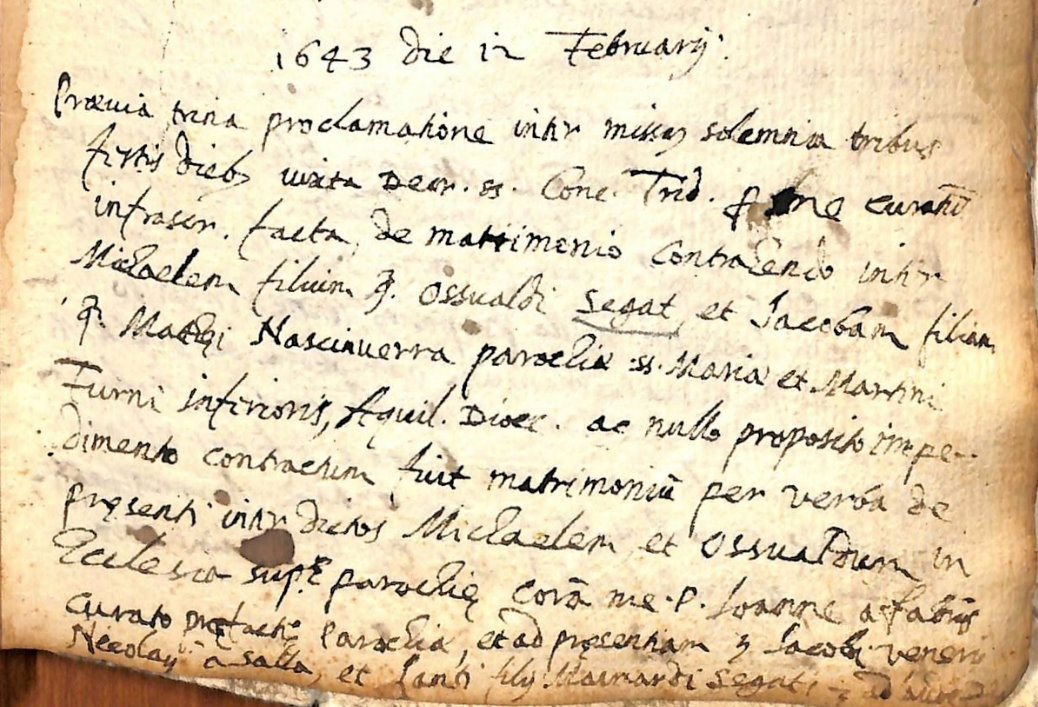 1643 die 12 Februarij.
Præuia trina proclamatione inter missaꝝ solemnia tribus
festis diebꝫ iuxta Decr. ss. Conc. Trid. ꝑ me curatū
infrascr. facta, de matrimonio contradendo inter
Michaelem filium q. Ossualdi Segat et Jacobam filiam
q. Nascinuerra parochiæ ss. Mariæ et Martini
Furni inferioris, Aquil. Dioec. ac nullo proposito impe-
dimento contractum fuit matrimoniū per verba de
pręsenti inter dictos Michaelem et Ossualdum in
Ecclesia parochię corā me P. Joanne a fabris
curato Parochiæ, et ad pręsentiam Jacobi
Nicolaij à Salla, et filij Mainardi Segati